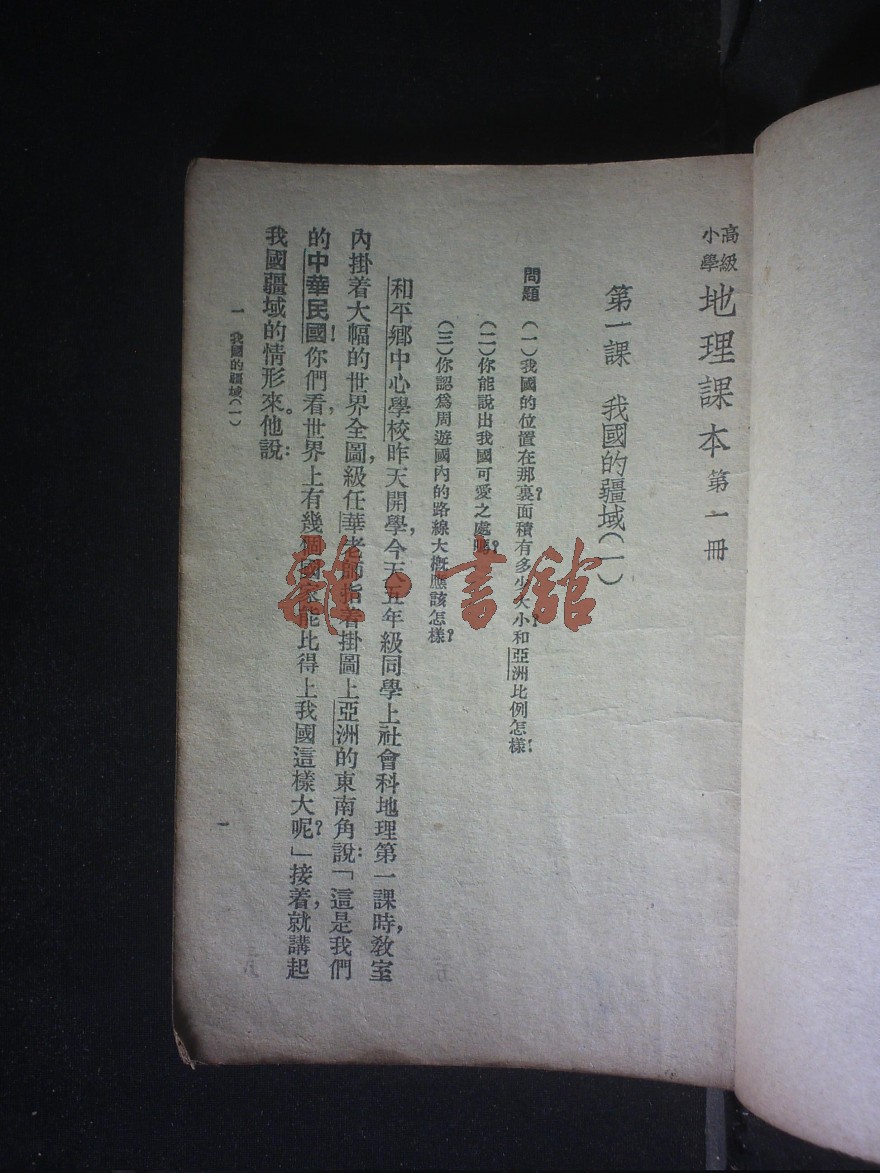 高級小學地理課本第一冊
第一課　我國的疆域(一)
問題　(一)我國的位置在那裏?面積有多少大小?和亞洲比例怎樣?
(二)你能說出我國可愛之處嗎?
(三)你認爲周遊國內的路線大概應該怎樣?
和平鄉中心學校昨天開學,今天五年級同學上社會科地理第一課時,教室
內掛着大幅的世界全圖,級任華老師指着掛圖上亞洲的東南角說:「這是我們
的中華民國!你們看,世界上有幾個國家能比得上我國這樣大呢?」接着,就講起
我國疆域的情形來。他說:
一　我國的疆域(一)
一
雜·書館